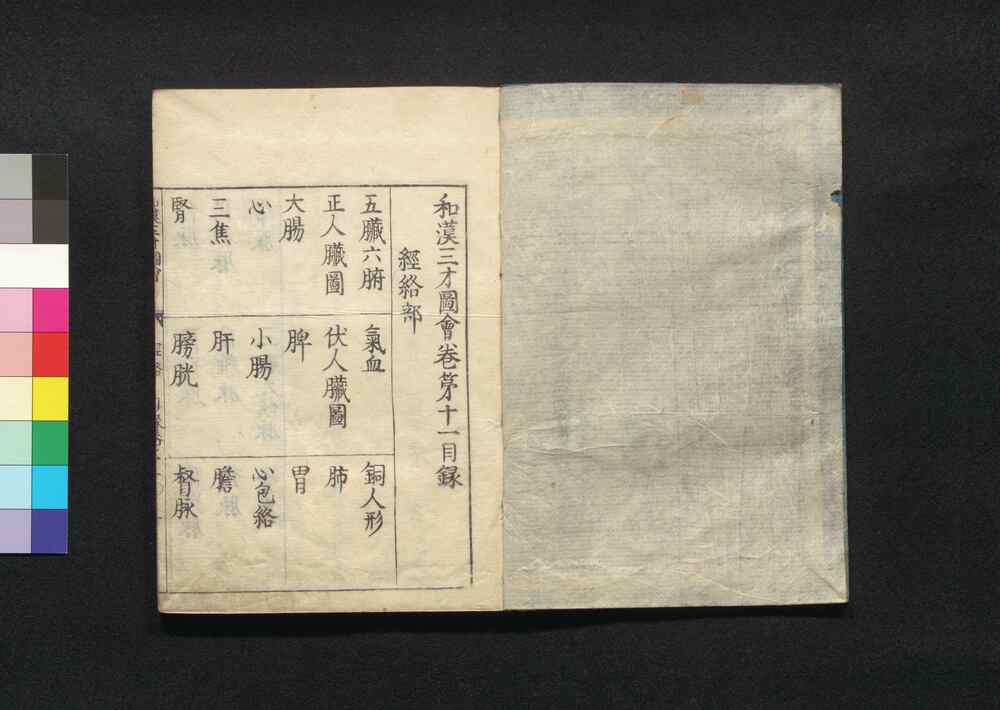 和漢三才圖會卷第十一目録
經絡部
五臟六腑 氣血 銅人形
正人臟圖 伏人臟圖 肺
大腸 脾 胃
心 小腸 心包絡
三焦 肝 膽
腎 膀胱 督脉